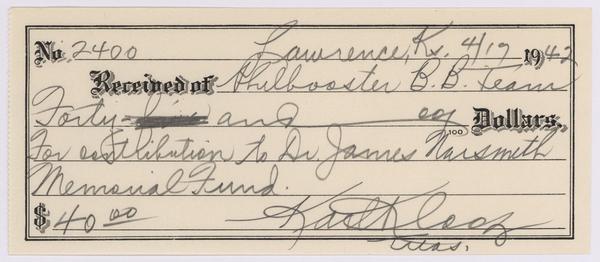 No. 2400 Lawrence, Ks. 4/17 1942
Received of Philbooster B.B. Team
Forty and 00/100 Dollars
For contribution to Dr. James Naismith
Memorial Fund.
$40.00 Karl Klooz
Treas.